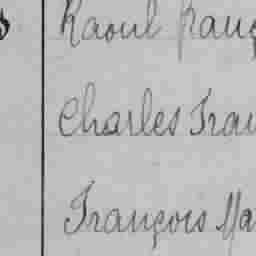 Raoul Franç
Charles Fran
François Ma